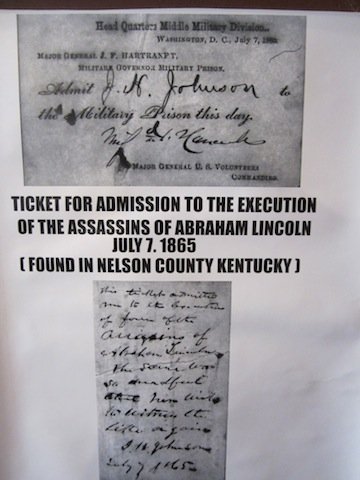 Head Quarters Middle Military Division,
WASHINGTON, D. C., July 7, 1865.
MAJOR GENERAL J. F. HARTRANFT,
MILITARY GOVERNOR MILITARY PRISON.
Admit J. H. Johnson to
the Military Prison this day.
MAJOR GENERAL U. S. VOLUNTEERS
COMMANDING.
TICKET FOR ADMISSION TO THE EXECUTION
OF THE ASSASSINS OF ABRAHAM LINCOLN
JULY 7. 1865
( FOUND IN NELSON COUNTY KENTUCKY )
This ticket admitted
me to the Execution
of four of the
assassins of
Abraham Lincoln
the
so dreadful
to witness the
like again
J H Johnson
July 7 1865